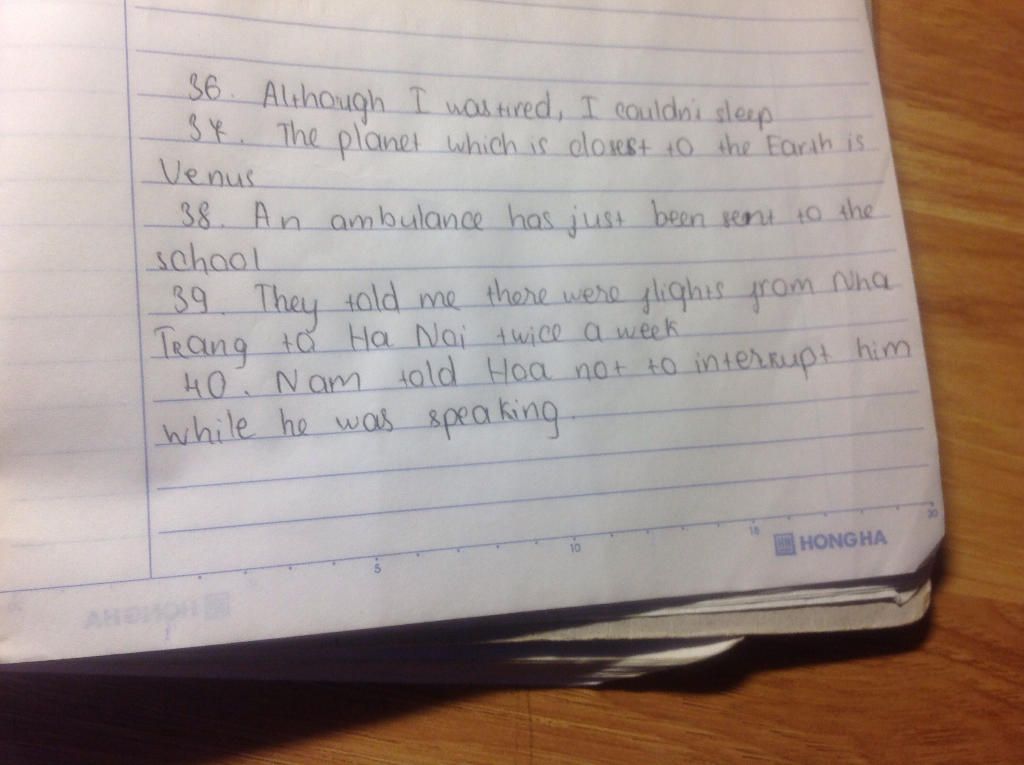 36. Although I was tired, I couldn't sleep
37. The planet which is closest to the Earth is
Venus
38. An ambulance has just been sent to the
school
39. They told me there were flights from Nha
Trang to Ha Noi twice a week
40. Nam told Hoa not to interrupt him
while he was speaking.
5 10 15 20
HONG HA
HONG HA